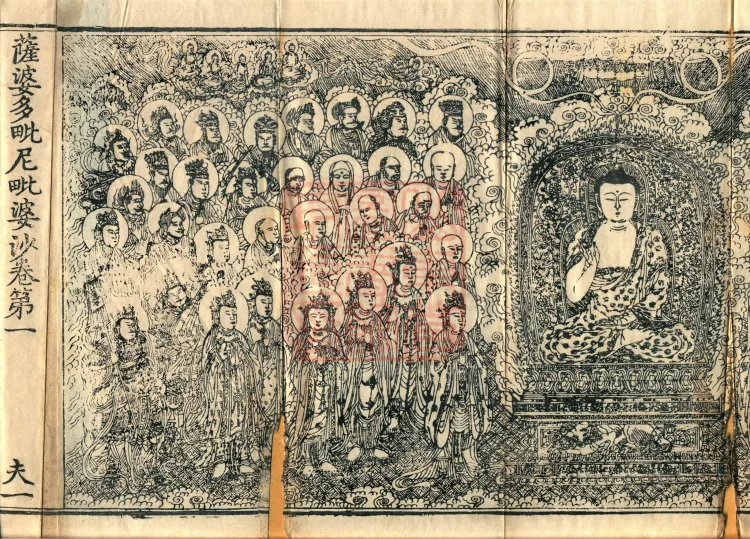 薩婆多毗尼毗婆沙卷第一
夫一